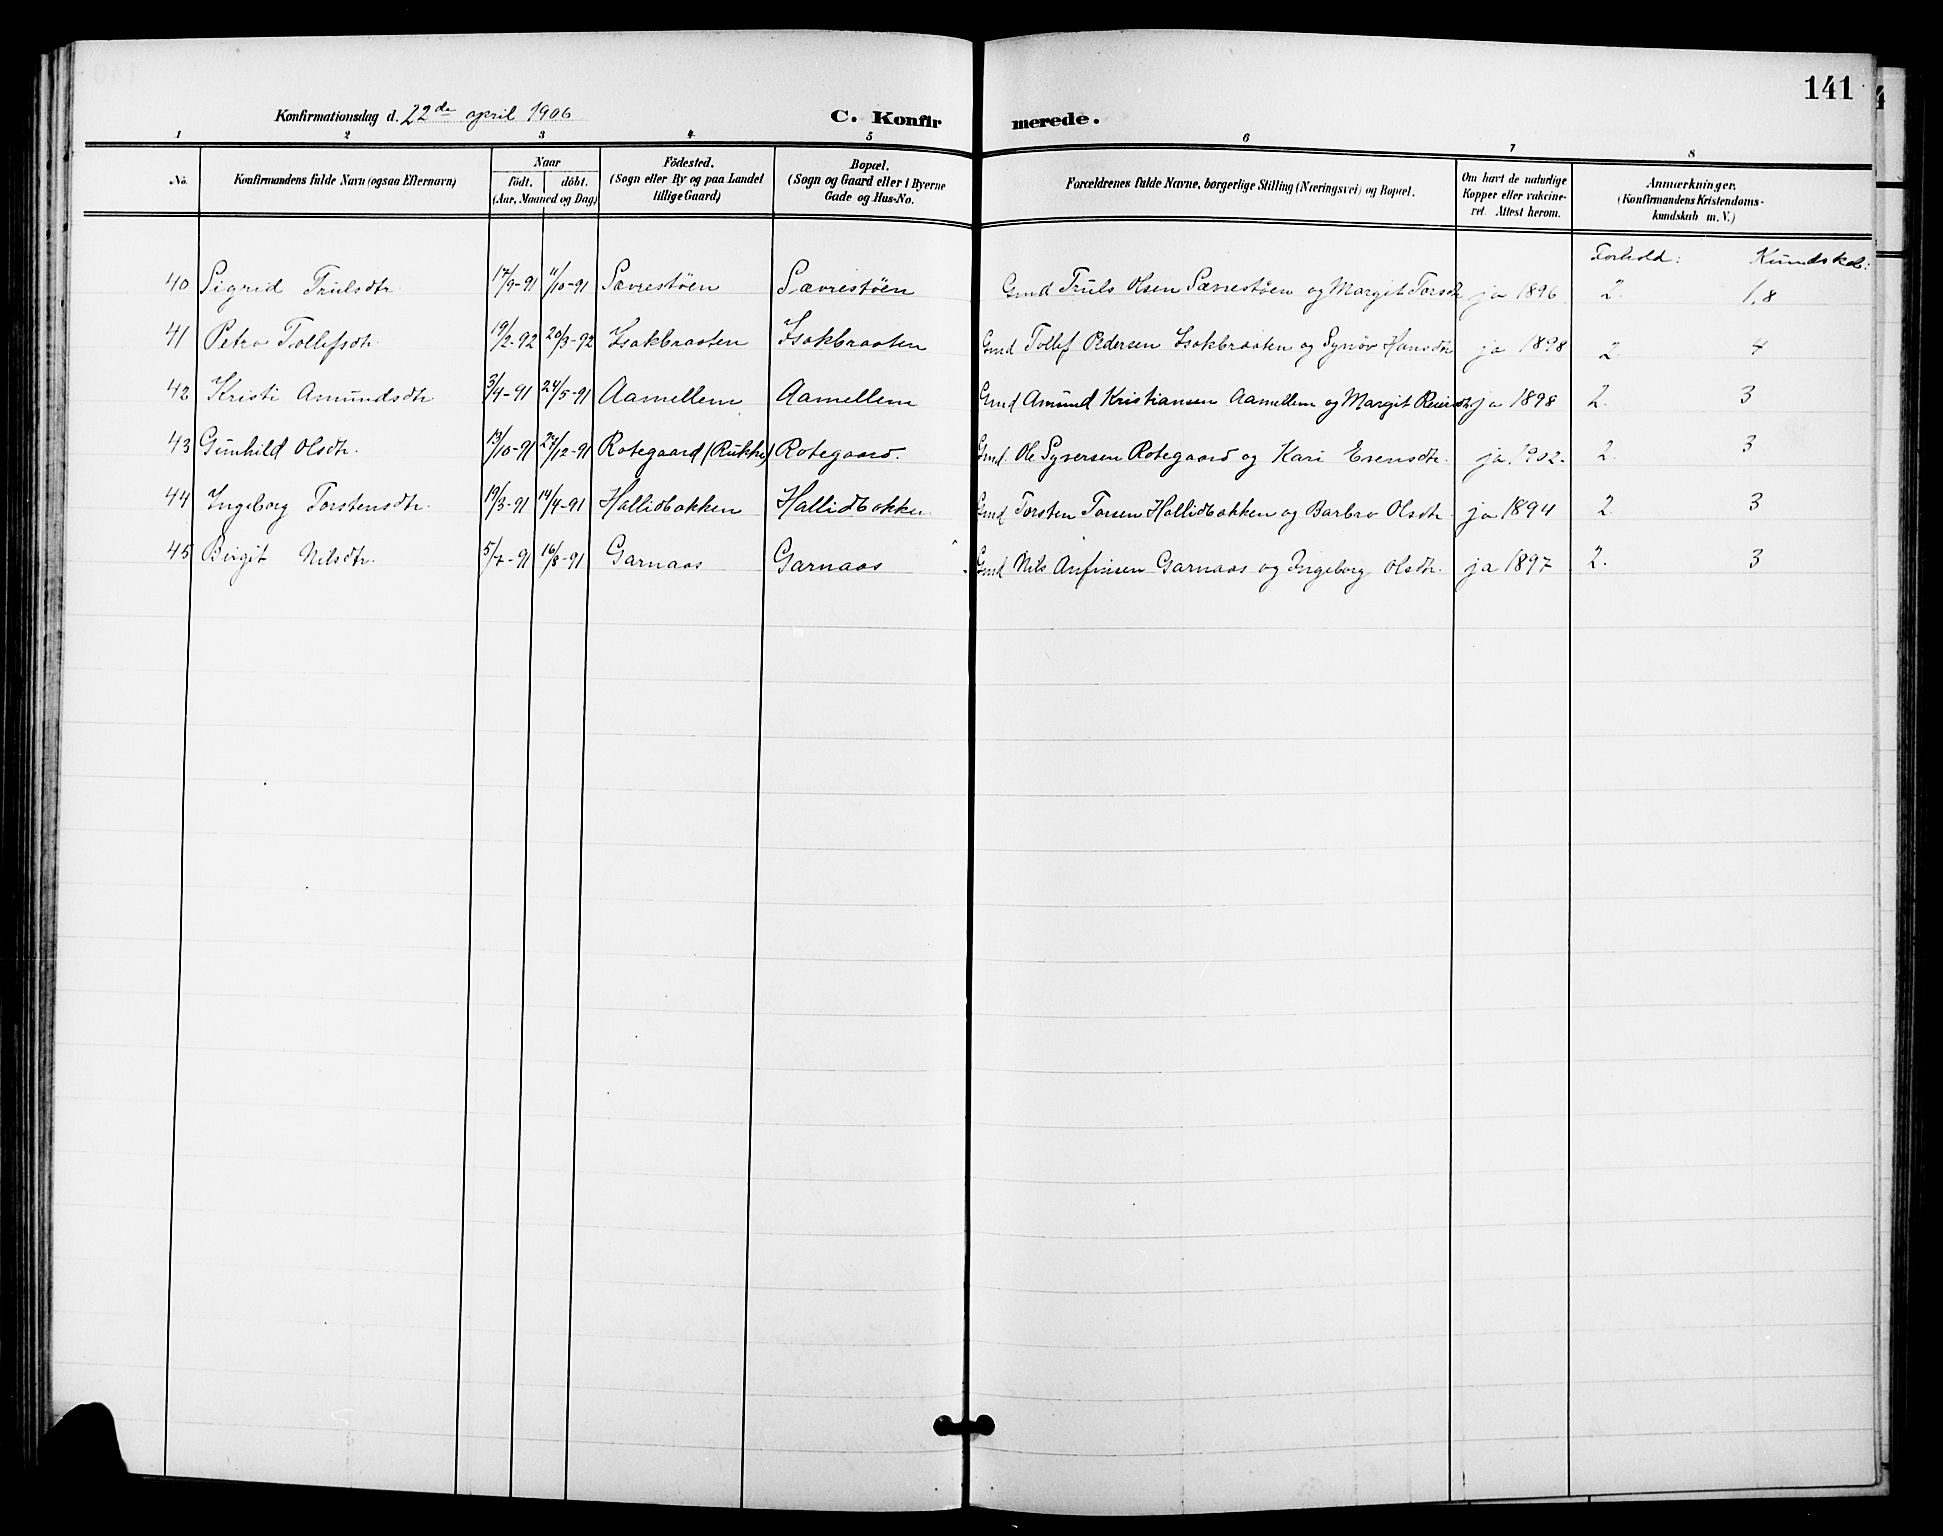 141
Konfirmationsdag d. 22de april 1906 C. Konfirmerede.
1 2 3 4 5 6 7 8
No. Konfirmandens fulde Navn (ogsaa Efternavn) Naar födt. döbt. (Aar, Maaned og Dag) Födested. (Sogn eller By og paa Landet tillige Gaard) Bopæl. (Sogn og Gaard eller i Byerne Gade og Hus-No. Forældrenes fulde Navne, borgerlige Stilling (Næringsvei) og Bopæl. Om havt de naturlige Kopper eller vakcineret. Attest herom. Anmærkninger. (Konfirmandens Kristendomskundskab m. V.)
Forhold: Kundskab:
40 Sigrid Trulsdtr. 17/9-91 11/10-91 Sævrestöen Sævrestöen Gmd Truls Olsen Sævrestöen og Margit Torsdtr ja 1896 2. 1,8
41 Petra Tollefsdtr. 19/2-92 20/3-92 Isakbraaten Isakbraaten Gmd Tollef Pedersen Isakbraaten og Synöv Hansdtr ja 1898 2. 4
42 Kristi Amundsdtr 3/4-91 24/5-91 Aamellem Aamellem Gmd Amund Kristiansen Aamellem og Margit Reiersdtr ja 1898 2. 3
43 Gunhild Olsdtr. 13/10-91 27/12-91 Rotegaard (Rukke) Rotegaard. Gmd. Ole Syversen Rotegaard og Kari Evensdtr. ja 1902. 2. 3
44 Ingeborg Torstensdtr. 19/3-91 14/4-91 Hallidbakken Hallidbakken Gmd Torsten Torsen Hallidbakken og Barbro Olsdtr. ja 1894 2. 3
45 Birgit Nilsdtr. 5/7-91 16/8-91 Garnaas Garnaas Gmd Nils Anfinsen Garnaas og Ingeborg Olsdtr. ja 1897 2. 3